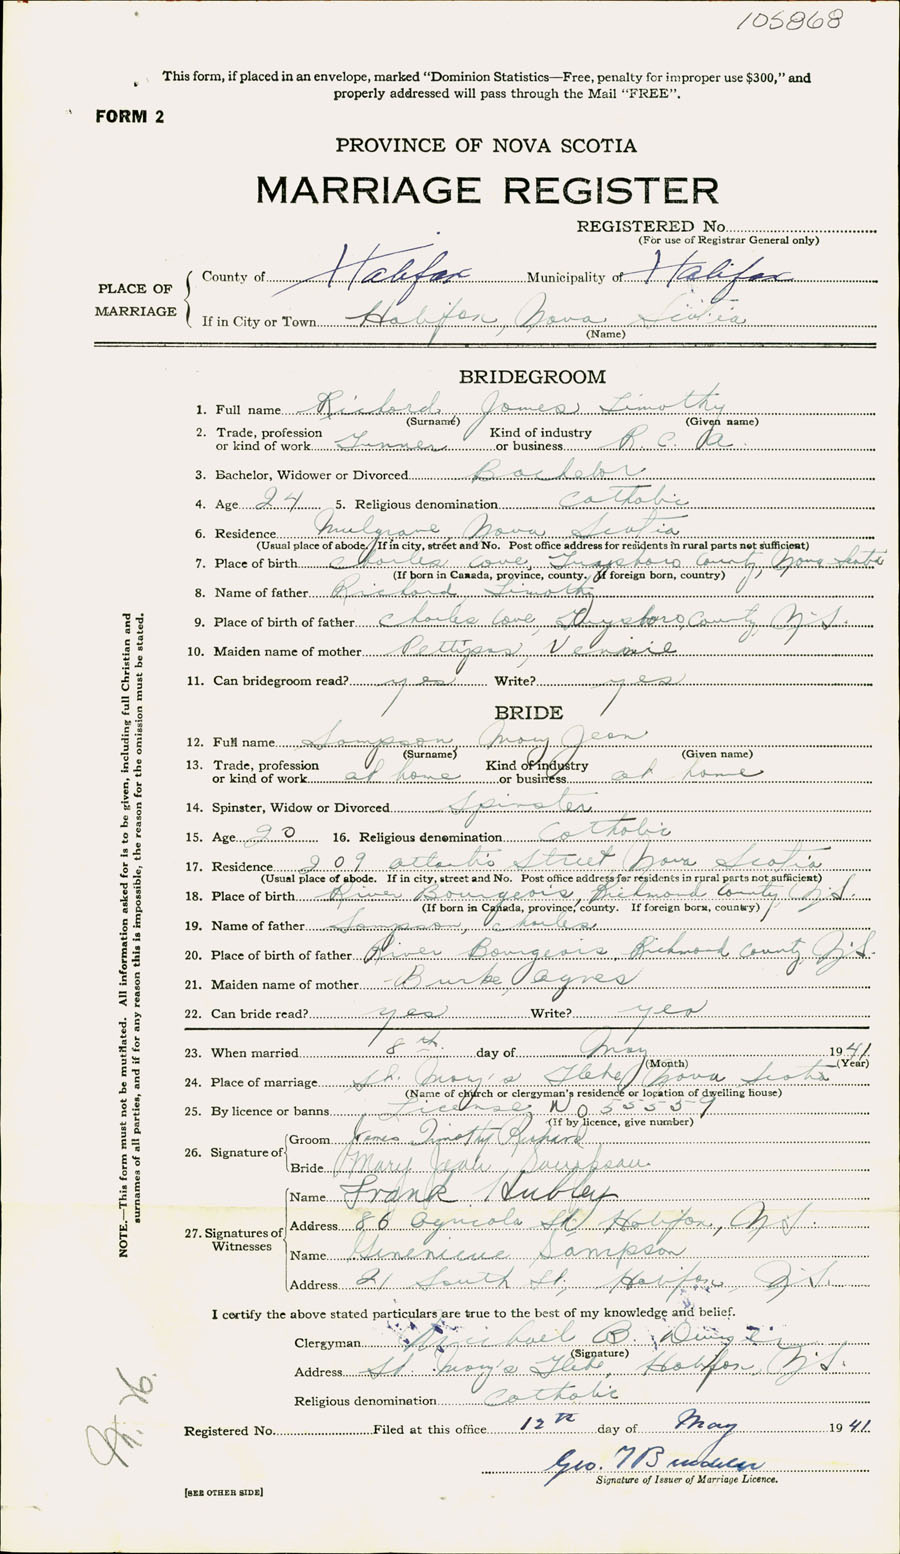 105868
This form, if placed in an envelope, marked "Dominion Statistics—Free, penalty for improper use $300," and
properly addressed will pass through the Mail "FREE".
FORM 2
PROVINCE OF NOVA SCOTIA
MARRIAGE REGISTER
REGISTERED No.
(For use of Registrar General only)
PLACE OF MARRIAGE
County of Halifax Municipality of Halifax
If in City or Town Halifax, Nova Scotia
(Name)
BRIDEGROOM
1. Full name Richard James Timothy
(Surname) (Given name)
2. Trade, profession or kind of work Kind of industry or business R. C. A.
3. Bachelor, Widower or Divorced Bachelor
4. Age 24 5. Religious denomination Catholic
6. Residence Mulgrave, Nova Scotia
(Usual place of abode. If in city, street and No. Post office address for residents in rural parts not sufficient)
7. Place of birth Charles Cove, Guysboro County, Nova Scotia
(If born in Canada, province, county. If foreign born, country)
8. Name of father Richard Timothy
9. Place of birth of father Charles Cove, Guysboro County, N.S.
10. Maiden name of mother Pettipas,
11. Can bridegroom read? yes Write? yes
BRIDE
12. Full name Sampson Mary Jean
(Surname) (Given name)
13. Trade, profession or kind of work at home Kind of industry or business at home
14. Spinster, Widow or Divorced Spinster
15. Age 20 16. Religious denomination Catholic
17. Residence 209 Atlantic Street Nova Scotia
(Usual place of abode. If in city, street and No. Post office address for residents in rural parts not sufficient)
18. Place of birth River Bourgeois, Richmond County, N.S.
(If born in Canada, province, county. If foreign born, country)
19. Name of father Sampson, Charles
20. Place of birth of father River Bourgeois Richmond County, N.S.
21. Maiden name of mother Burke, Agnes
22. Can bride read? yes Write? yes
23. When married 8th day of May 1941
(Month) (Year)
24. Place of marriage St. Mary's Glebe, Nova Scotia
(Name of church or clergyman's residence or location of dwelling house)
25. By licence or banns License No 55559
(If by licence, give number)
26. Signature of
Groom James Timothy Richard
Bride Mary Jean Sampson
27. Signatures of Witnesses
Name Frank Hubley
Address 86 Agricola St. Halifax, N.S.
Name Genevieve Sampson
Address 21 South St., Halifax, N.S.
I certify the above stated particulars are true to the best of my knowledge and belief.
Clergyman Michael B.
(Signature)
Address St. Mary's Glebe, Halifax, N.S.
Religious denomination Catholic
Registered No. Filed at this office 12th day of May 1941.
Geo.
Signature of Issuer of Marriage Licence.
[SEE OTHER SIDE]
NOTE.—This form must not be mutilated. All information asked for is to be given, including full Christian and
surnames of all parties, and if for any reason this is impossible, the reason for the omission must be stated.